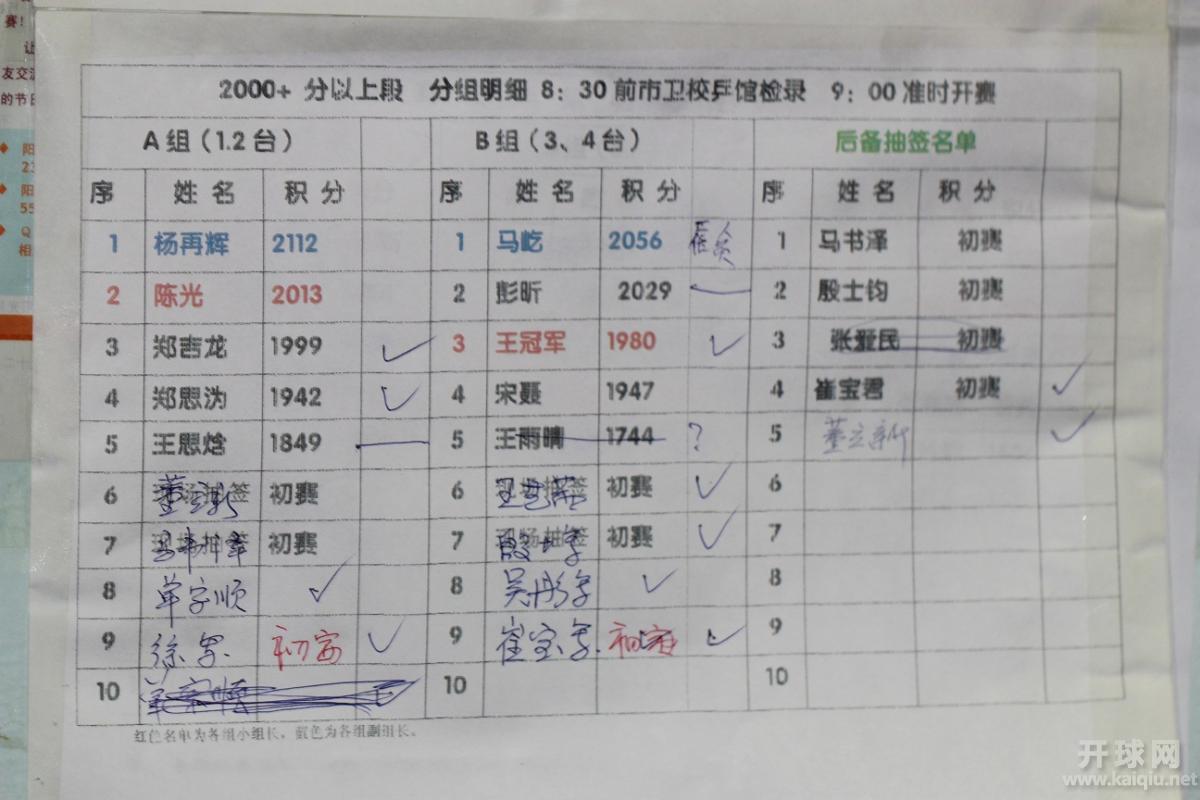 赛！
让
友交流
的节日
2000+ 分以上段 分组明细 8：30 前市卫校乒馆检录 9：00 准时开赛
A 组（1.2 台） B 组（3、4 台） 后备抽签名单
序 姓 名 积 分 序 姓 名 积 分 序 姓 名 积 分
1 杨再辉 2112 1 马屹 2056 1 马书泽 初赛
2 陈光 2013 2 彭昕 2029 2 殷士钧 初赛
3 郑吉龙 1999 ✓ 3 王冠军 1980 ✓ 3 张爱民 初赛
4 郑思沩 1942 ✓ 4 宋聂 1947 4 崔宝君 初赛 ✓
5 王思焓 1849 5 王雨晴 1744 ? 5 董立新 ✓
6 现场抽签 初赛 6 现场抽签 初赛 ✓ 6
7 现场抽签 初赛 7 现场抽签 初赛 ✓ 7
8 单字顺 ✓ 8 ✓ 8
9 徐 ✓ 9 崔宝 ✓ 9
10 10 10
红色名单为各组小组长，蓝色为各组副组长。
开球网
www.kaiqiu.net